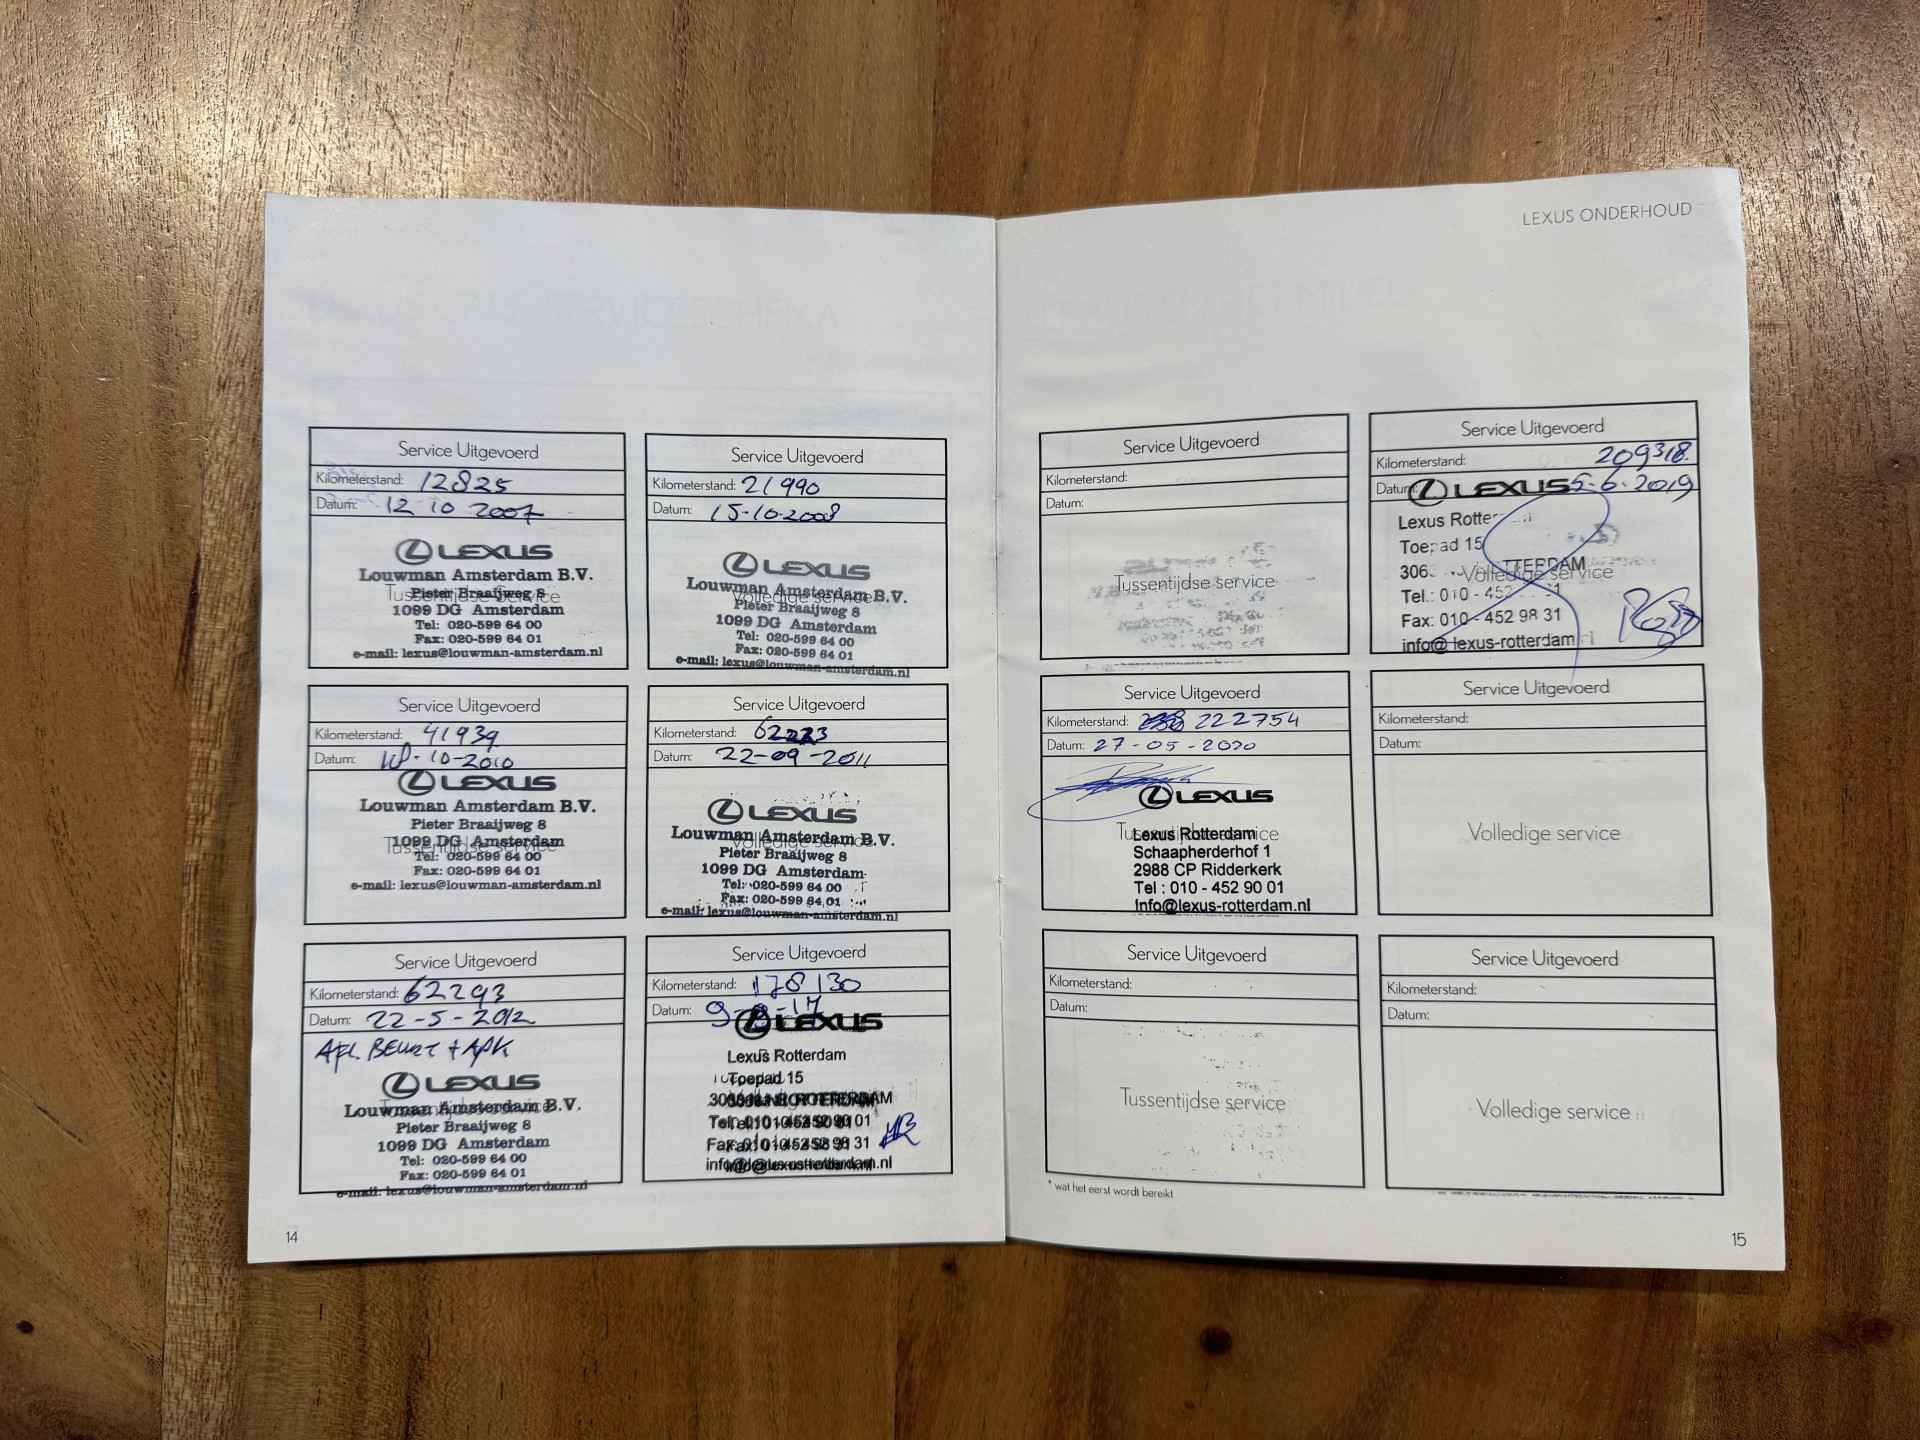 LEXUS ONDERHOUD
Service Uitgevoerd
Kilometerstand: 12825
Datum: 12 10 2007
LEXUS
Louwman Amsterdam B.V.
Tussentijdse Service
Pieter Braaijweg 8
1099 DG Amsterdam
Tel: 020-599 64 00
Fax: 020-599 64 01
e-mail: lexus@louwman-amsterdam.nl
Service Uitgevoerd
Kilometerstand: 21990
Datum: 15-10-2008
LEXUS
Louwman Amsterdam B.V.
Volledige service
Pieter Braaijweg 8
1099 DG Amsterdam
Tel: 020-599 64 00
Fax: 020-599 64 01
e-mail: lexus@louwman-amsterdam.nl
Service Uitgevoerd
Kilometerstand: 41939
Datum: -10-2010
LEXUS
Louwman Amsterdam B.V.
Pieter Braaijweg 8
1099 DG Amsterdam
Tussentijdse service
Tel: 020-599 64 00
Fax: 020-599 64 01
e-mail: lexus@louwman-amsterdam.nl
Service Uitgevoerd
Kilometerstand:
Datum: 22-09-2011
LEXUS
Louwman Amsterdam B.V.
Volledige service
Pieter Braaijweg 8
1099 DG Amsterdam
Tel: 020-599 64 00
Fax: 020-599 64 01
e-mail: lexus@louwman-amsterdam.nl
Service Uitgevoerd
Kilometerstand: 62293
Datum: 22-5-2012
Afl. BEURT + APK
LEXUS
Louwman Amsterdam B.V.
Tussentijdse service
Pieter Braaijweg 8
1099 DG Amsterdam
Tel: 020-599 64 00
Fax: 020-599 64 01
e-mail: lexus@louwman-amsterdam.nl
Service Uitgevoerd
Kilometerstand: 178130
Datum:
LEXUS
Lexus Rotterdam
Toepad 15
ROTTERDAM
14
Service Uitgevoerd
Kilometerstand:
Datum:
Tussentijdse service
Service Uitgevoerd
Kilometerstand: 209318
Datum: 5-6-2019
LEXUS
Lexus
Toepad 15
Volledige service
Tel.: 010 - 452
Fax: 010 - 452 98 31
info@lexus-rotterdam
Service Uitgevoerd
Kilometerstand: 222754
Datum: 27-05-2020
LEXUS
Tussentijdse service
Lexus Rotterdam
Schaapherderhof 1
2988 CP Ridderkerk
Tel : 010 - 452 90 01
Info@lexus-rotterdam.nl
Service Uitgevoerd
Kilometerstand:
Datum:
Volledige service
Service Uitgevoerd
Kilometerstand:
Datum:
Tussentijdse service
Service Uitgevoerd
Kilometerstand:
Datum:
Volledige service
* wat het eerst wordt bereikt
15